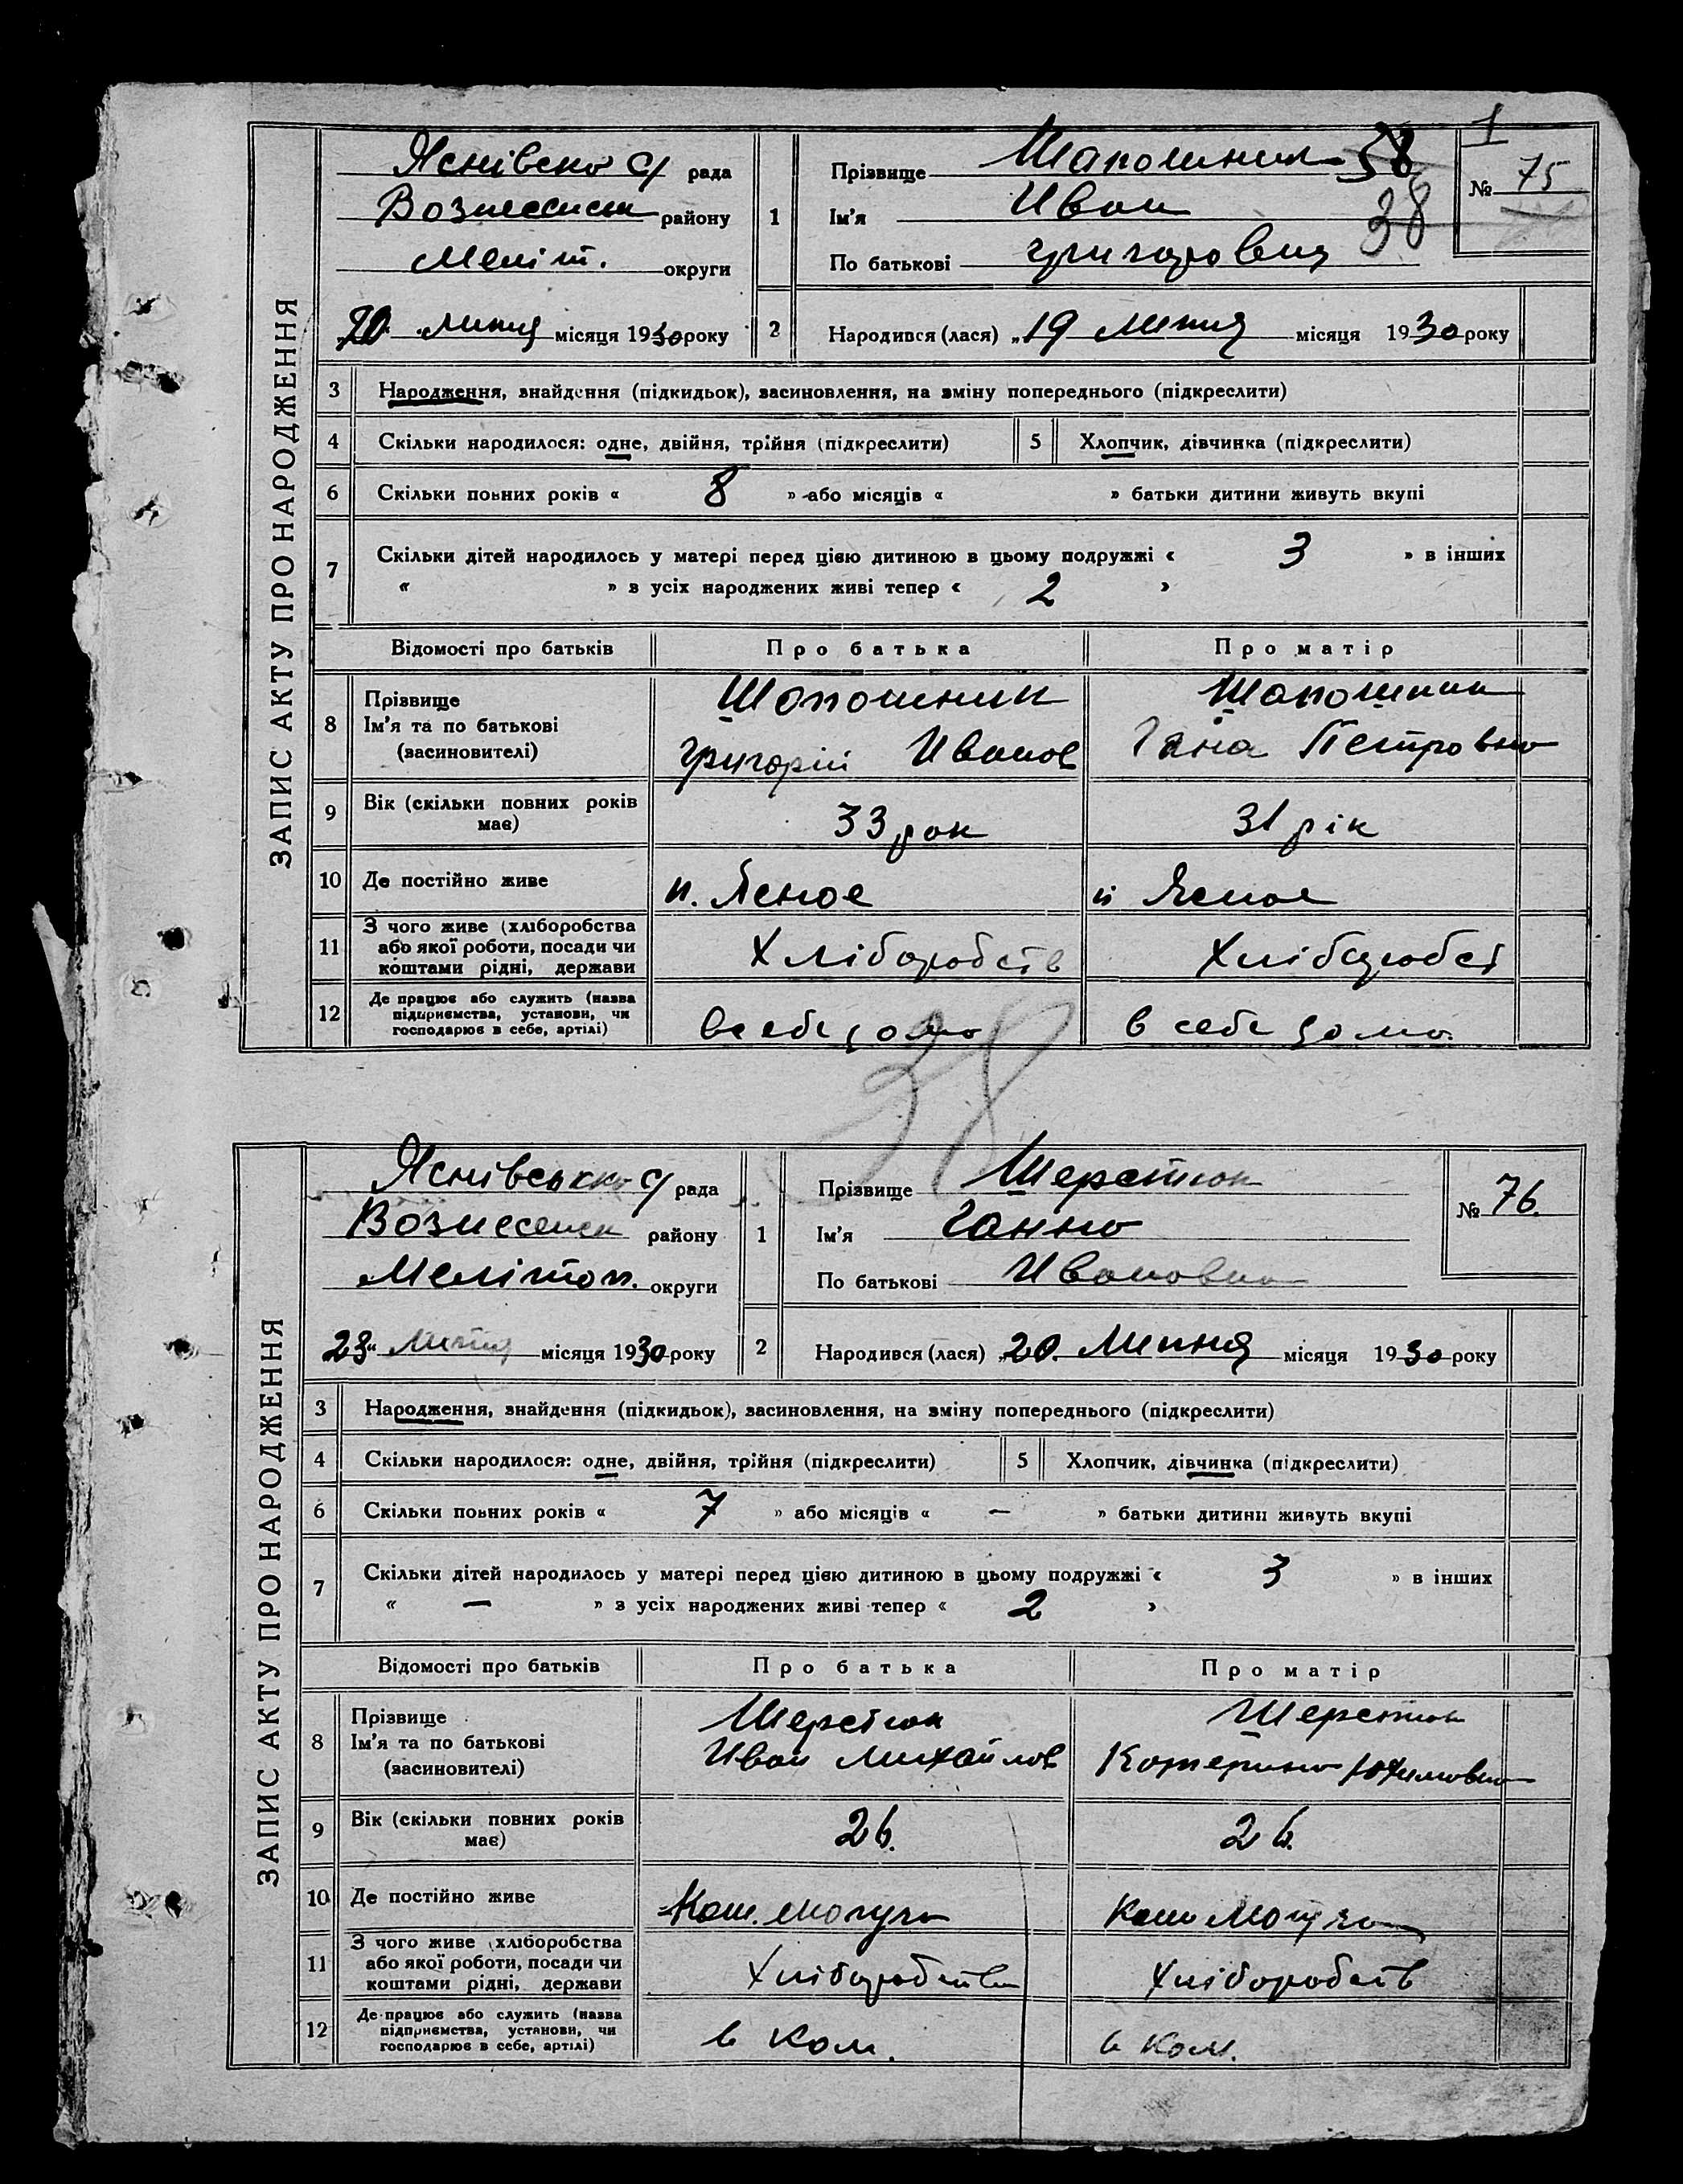 ЗАПИС АКТУ ПРО НАРОДЖЕННЯ
1
Яснівсько с/ рада
Вознесенск району
Меліт. округи
1 Прізвище Шапошник 58
Ім'я Иван 38
По батькові Григорович
№ 75
20 липня місяця 1930 року
2 Народився (лася) „19 Липня місяця 1930 року
3 Народження, знайдення (підкидьок), засиновлення, на зміну попереднього (підкреслити)
4 Скільки народилося: одне, двійня, трійня (підкреслити) 5 Хлопчик, дівчинка (підкреслити)
6 Скільки повних років « 8 » або місяців « » батьки дитини живуть вкупі
7 Скільки дітей народилось у матері перед цією дитиною в цьому подружжі « 3 » в інших
« » з усіх народжених живі тепер « 2 »
Відомості про батьків Про батька Про матір
8 Прізвище Ім'я та по батькові (засиновителі)
Шопошник Григорій Иванов
Шапошник Гана Петровно
9 Вік (скільки повних років має) 33 рок 31 рік
10 Де постійно живе п. Ясное п Ясное
11 З чого живе (хліборобства або якої роботи, посади чи коштами рідні, держави
Хліборобств Хліборобст
12 Де працює або служить (назва підприємства, установи, чи господарює в себе, артілі)
в себе дома в себе дома.
38
ЗАПИС АКТУ ПРО НАРОДЖЕННЯ
Яснівсько с/ рада
Вознесенск району
Мелітоп. округи
1 Прізвище Шерстюк
Ім'я Ганно
По батькові Ивановно
№ 76.
23" Липня місяця 1930 року
2 Народився (лася) „20. Липня місяця 1930 року
3 Народження, знайдення (підкидьок), засиновлення, на зміну попереднього (підкреслити)
4 Скільки народилося: одне, двійня, трійня (підкреслити) 5 Хлопчик, дівчинка (підкреслити)
6 Скільки повних років « 7 » або місяців « — » батьки дитини живуть вкупі
7 Скільки дітей народилось у матері перед цією дитиною в цьому подружжі « 3 » в інших
« — » з усіх народжених живі тепер « 2 »
Відомості про батьків Про батька Про матір
8 Прізвище Ім'я та по батькові (засиновителі)
Шерстюк Иван Михайлов
Шерстюк Котерино Юхимовно
9 Вік (скільки повних років має) 26. 26.
10 Де постійно живе
11 З чого живе (хліборобства або якої роботи, посади чи коштами рідні, держави
Хліборобств Хліборобств
12 Де працює або служить (назва підприємства, установи, чи господарює в себе, артілі)
в Ком. в Ком.